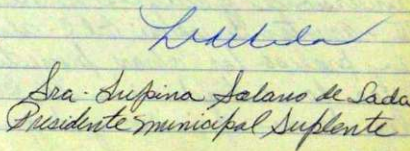 Sra. Lupina Solano de Sada
Presidente municipal Suplente